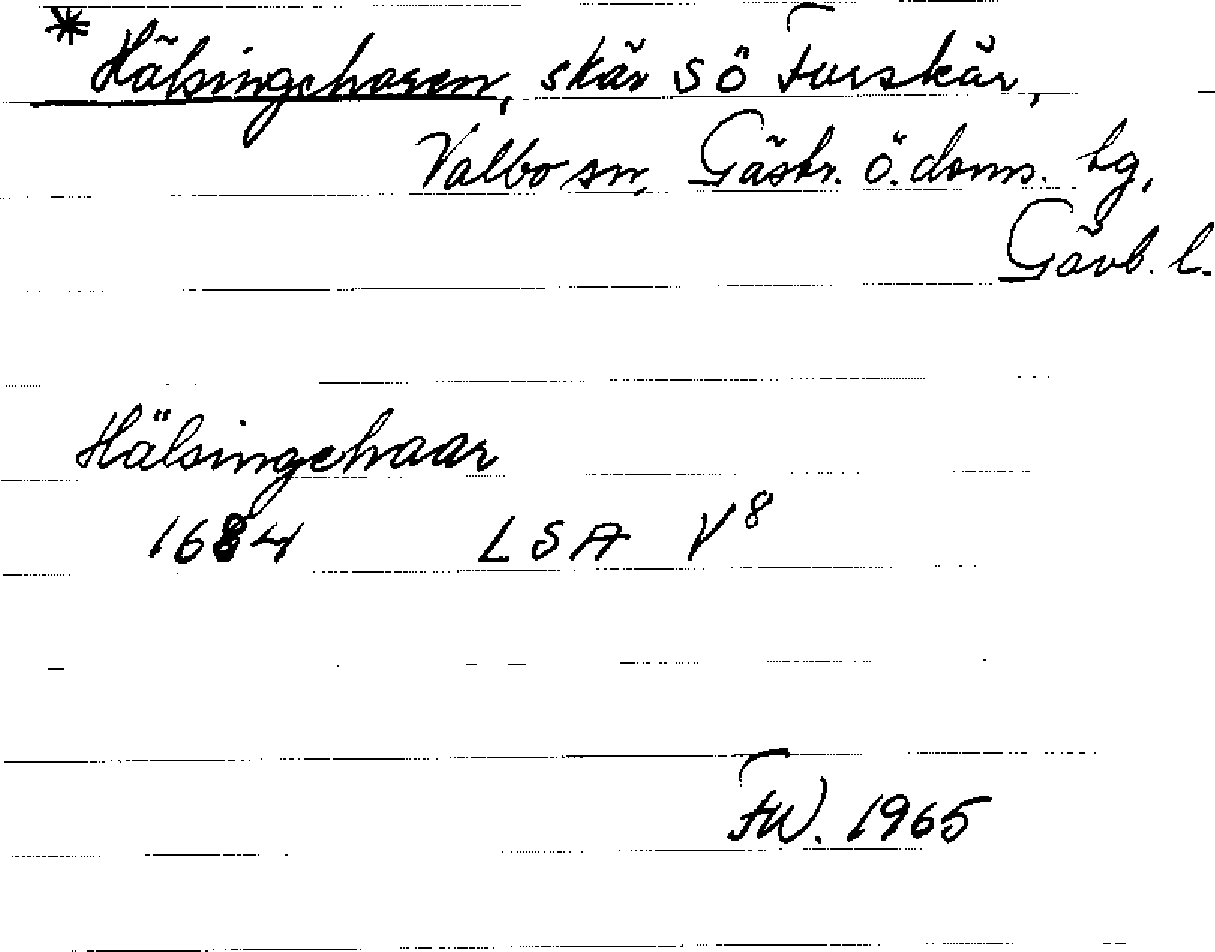 * Hälsingeharen, skär SÖ Furskär,
Valbo sn, Gästr. ö. doms. hg,
Gävb. l.
Hälsingehaar
1684 LSA V⁸
FW. 1965